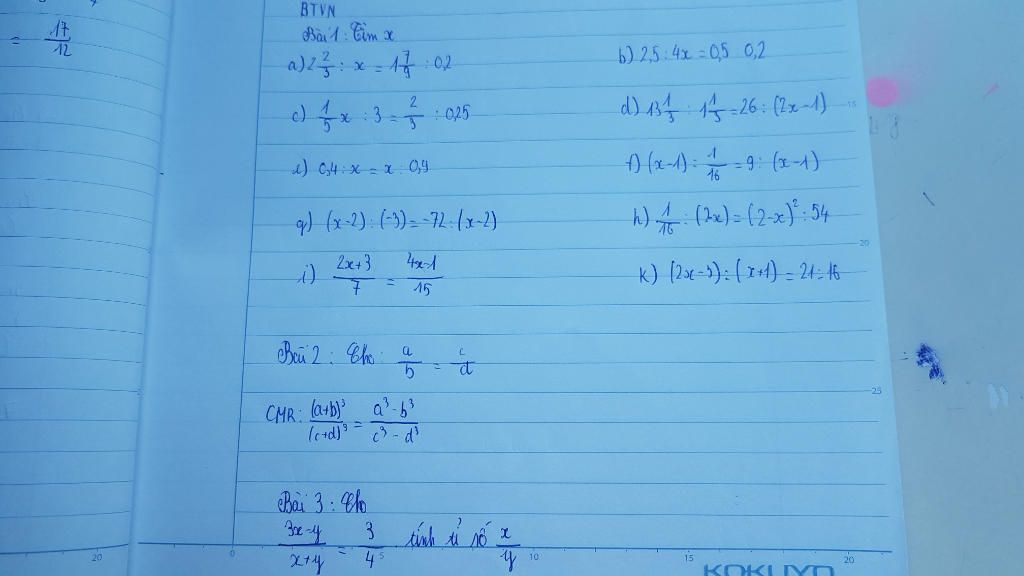 = 17/12
BTVN
Bài 1: Tìm x
a) 2 2/3 : x = 1 7/9 : 0,2
b) 2,5 : 4x = 0,5 : 0,2
c) 1/5 x : 3 = 2/3 : 0,25
d) 13 1/3 : 1 1/3 = 26 : (2x-1)
e) 0,4 : x = x : 0,9
f) (x-1) : 1/16 = 9 : (x-1)
g) (x-2) : (-3) = -72 : (x-2)
h) 1/16 : (2x) = (2-x)² : 54
i) 2x+3/7 = 4x-1/15
k) (2x-3) : (x+1) = 21 : 16
Bài 2 : Cho : a/b = c/d
CMR: (a+b)³/(c+d)³ = a³-b³/c³-d³
Bài 3 : Cho
3x-y/x+y = 3/4 tính tỉ số x/y
15
20
25
20 0 5 10 15 20
KOKUYO